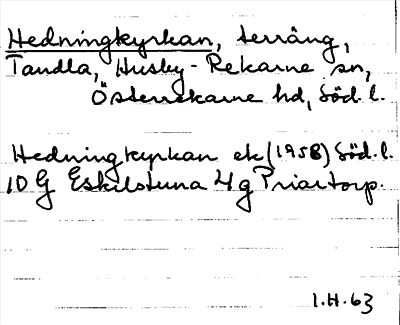 Hedningkyrkan, terräng,
Tandla, Husby-Rekarne sn,
Österrekarne hd, Söd. l.
Hedningkyrkan ek (1958) Söd. l.
10 G Eskilstuna 4 g Priortorp.
1.H.63